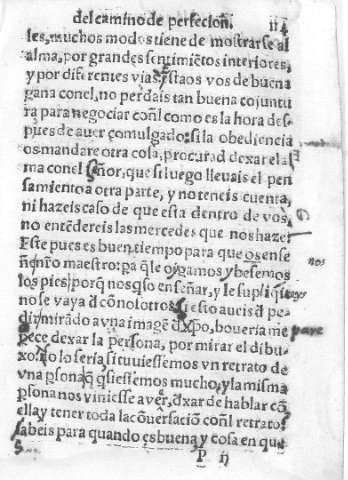 del camino de perfecion. 114
les, muchos modos tiene de mostrarse al
alma, por grandes sentimiẽtos interiores,
y por diferentes vias, estaos vos de buena
gana conel, no perdais tan buena cojuntu
ra para negociar cõel como es la hora des-
pues de auer comulgado: si la obediencia
os mandare otra cosa, procurad dexar el al
ma conel señor, que si luego lleuais el pen
samiento a otra parte, y no teneis cuenta,
ni hazeis caso de que esta dentro de vos,
no entẽdereis las mercedes que nos haze:
Este pues es buen tiempo para que os ense
ñe nr̃o maestro: pa q̃ le oygamos y besemos
los pies, porq̃ nos q̃so enseñar, y le supliq̃
no se vaya d̃ cõnosotros. si esto aueis d̃ pe-
dir mirãdo avna imagẽ d̃ xp̃o, boueria me
pece dexar la persona, por mirar el dibu-
xo: no lo seria, si tuuiessemos vn retrato de
vna p̃sona q̃ q̃siessemos mucho, y la misma
p̃sona nos viniesse a ver, d̃xar de hablar cõ
ella, y tener toda la cõuersaciõ cõel retrato?
sabeis para quando es buena, y cosa en que
P ij
nos
pare